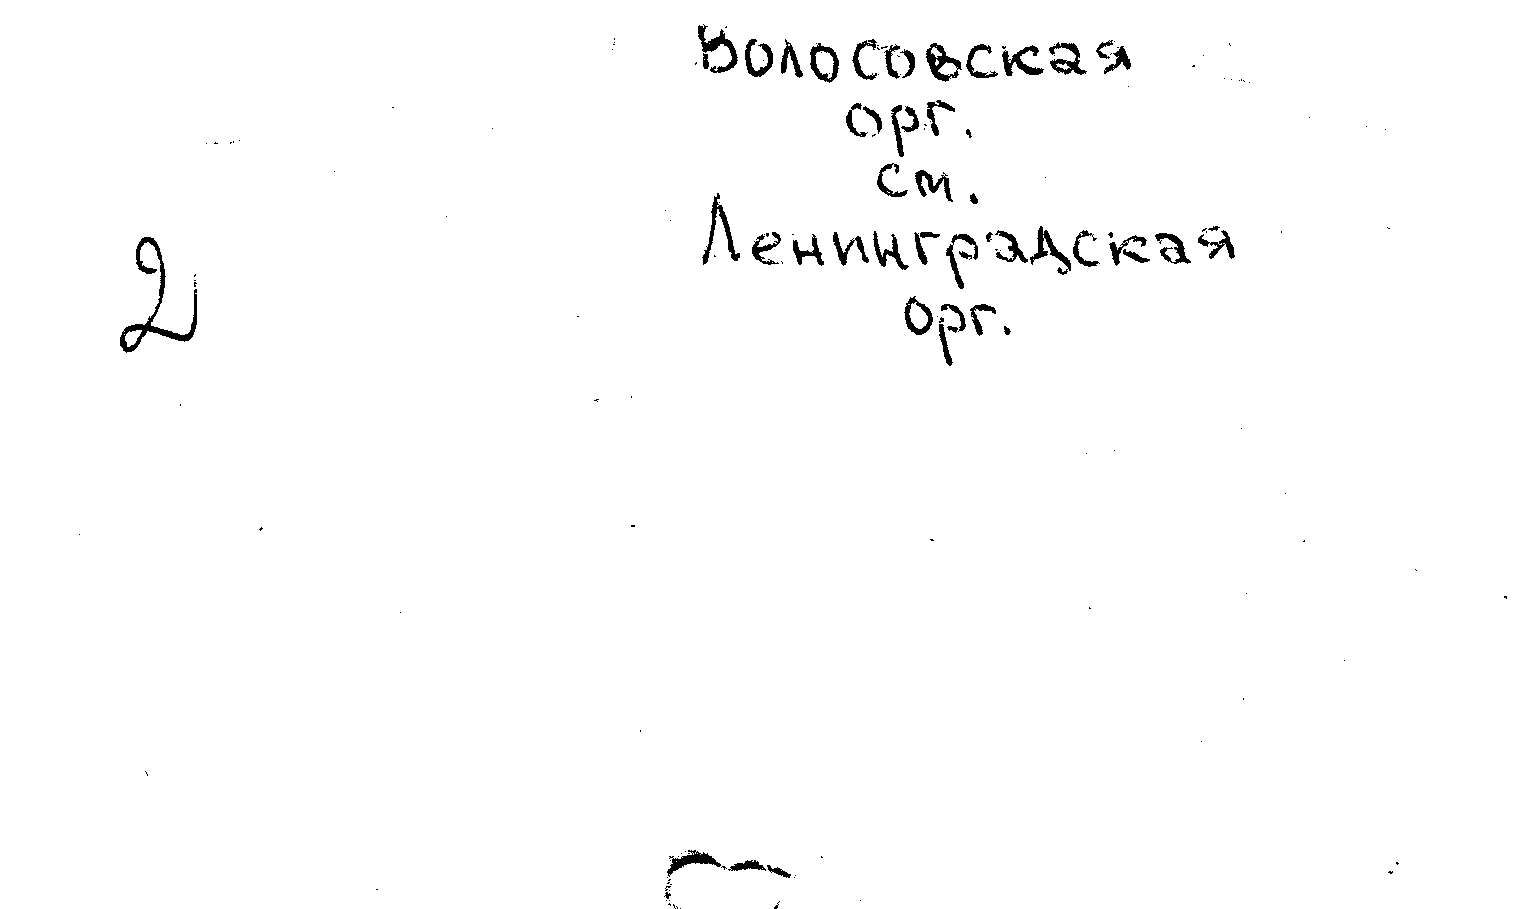 Волосовская
орг.
см.
Ленинградская
орг.
2